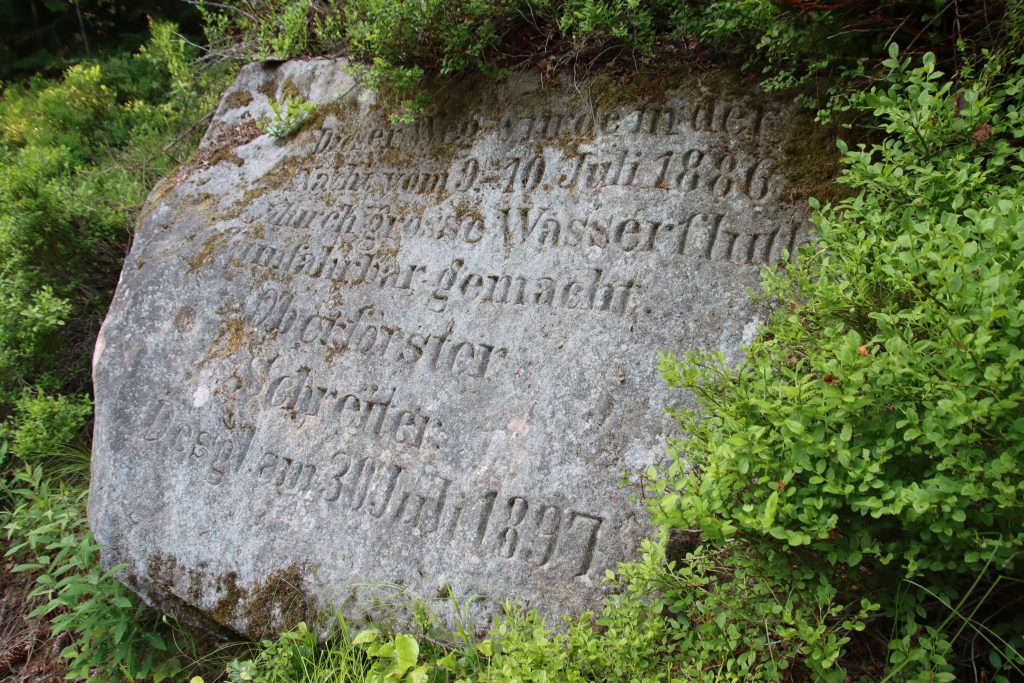 Dieser Weg wurde in der
Nacht vom 9.=10. Juli 1886
durch grosse Wasserfluth
unfahrbar gemacht.
Oberförster
Schreiter.
Desgl. am 30 Juli 1897